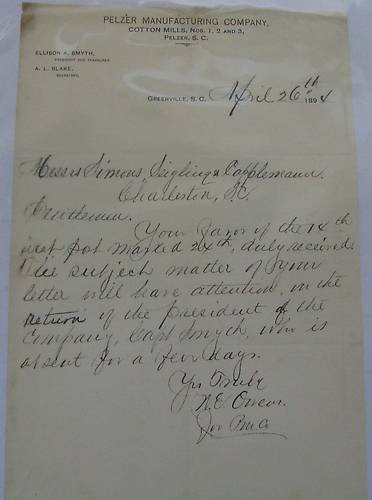 PELZER MANUFACTURING COMPANY,
COTTON MILLS, NOS. 1, 2 AND 3,
PELZER, S. C.
ELLISON A. SMYTH,
PRESIDENT AND TREASURER.
A. L. BLAKE,
SECRETARY.
GREENVILLE, S. C. April 26th 1894
Messrs Simons, Seigling & Cappelmann.
Charleston, S.C.
Gentlemen.
Your favor of the 14th
inst post marked 24th, duly received.
The subject matter of your
letter will have attention, on the
return of the president of the
Company, Capt Smyth, who is
absent for a few days.
Yrs Truly
N.E. Owens.
for P.M.Co